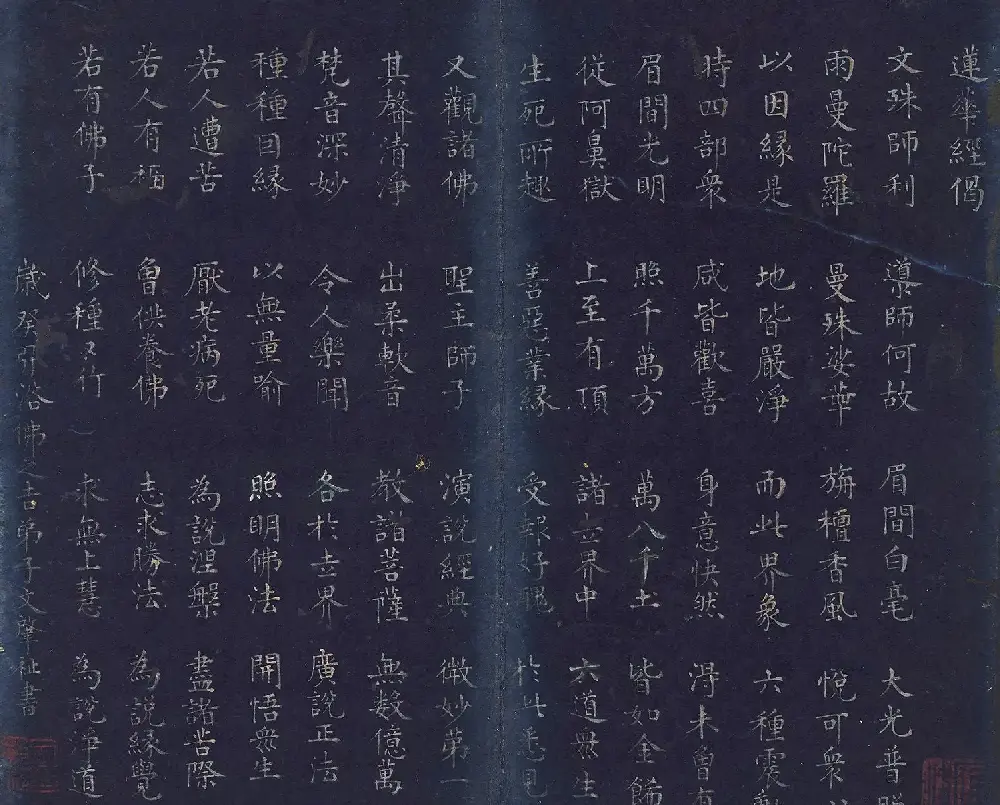 蓮華經偈
文殊師利 導師何故 眉間白毫 大光普
雨曼陀羅 曼殊娑華 栴檀香風 悅可衆
以因緣是 地皆嚴淨 而此界象 六種震
時四部衆 咸皆歡喜 身意快然 淂未曾有
眉間光明 照千萬方 萬八千土 皆如金餙
從阿鼻獄 上至有頂 諸立界中 六道衆生
生死所趣 善惡業緣 受報好醜 於此悉見
又觀諸佛 聖主師子 演說經典 微妙第一
其聲清淨 出柔軟音 教諸菩薩 無數億萬
梵音深妙 令人樂聞 各於世界 廣說正法
種種因緣 以無量喻 照明佛法 開悟衆生
若人遭苦 厭老病死 為說涅槃 盡諸苦際
若人有福 曾供養佛 志求勝法 為說緣覺
若有佛子 修種又竹 求無上慧 為說淨道
歲癸浴佛之吉弟子文肇祉書